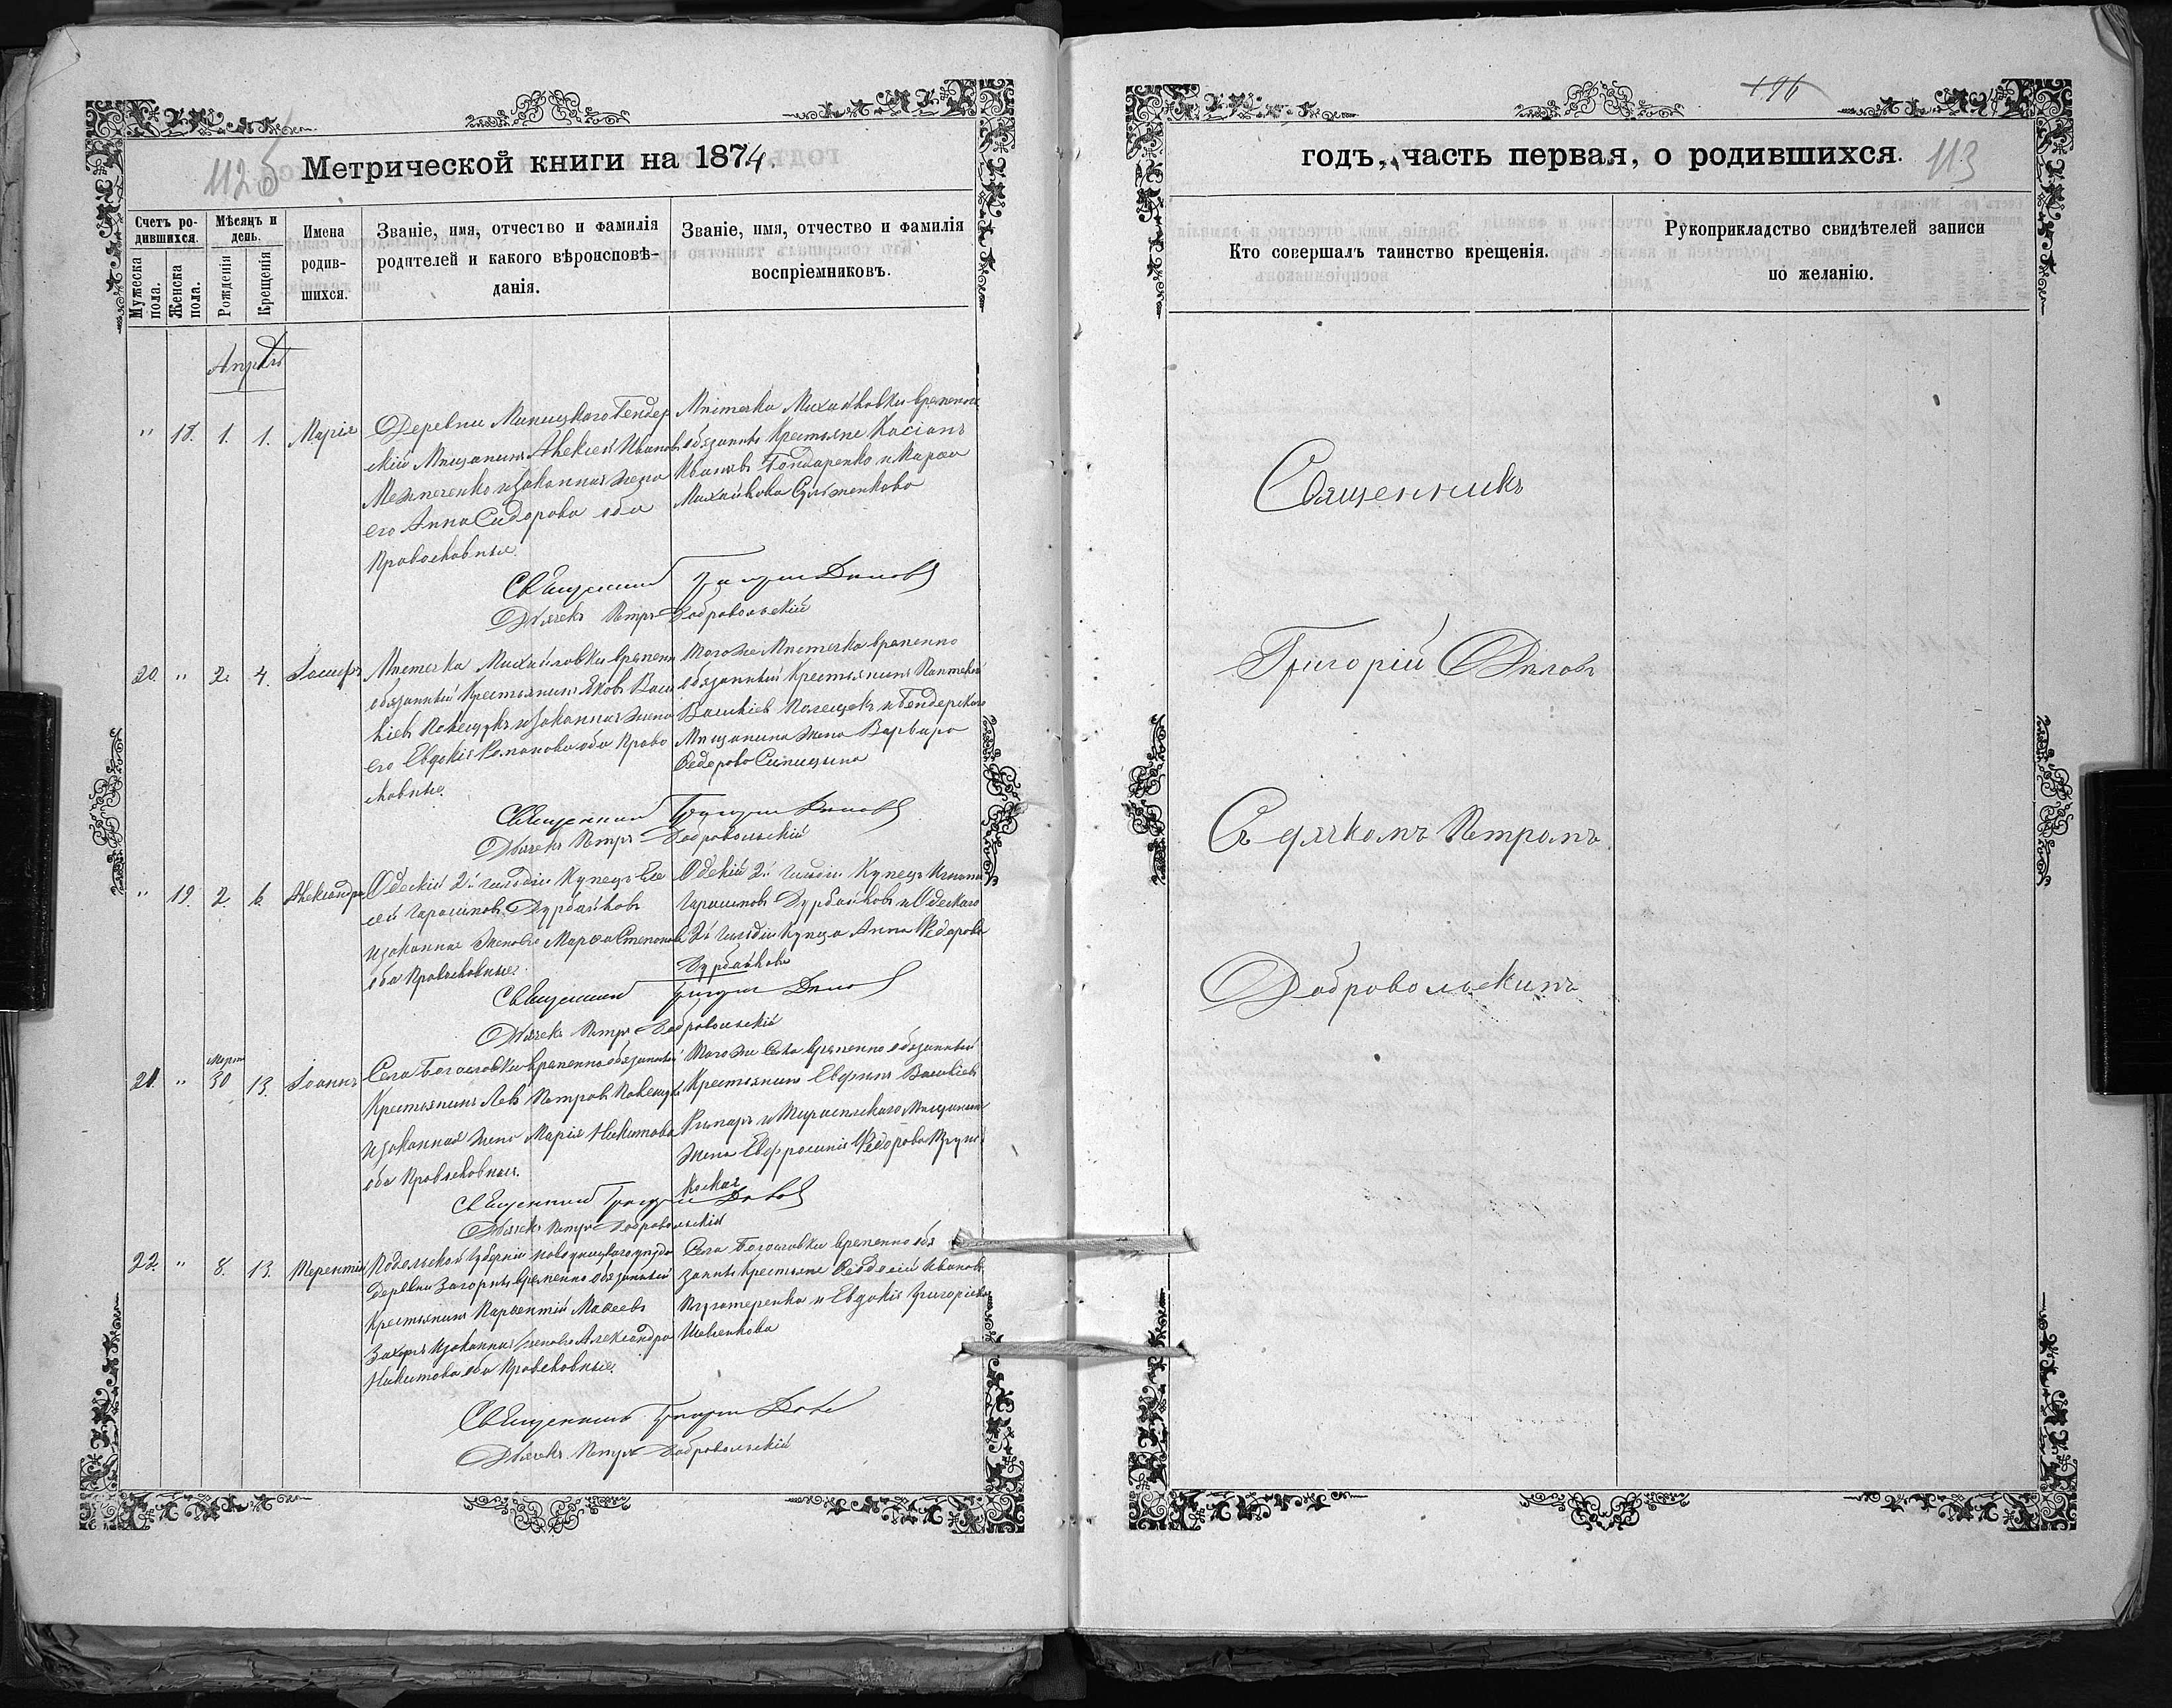 112 б
Метрической книги на 1874.
Счетъ ро-
дившихся.
Мужеска
пола.
Женска
пола.
Мѣсяцъ и
день.
Рожденія
Крещенія
Имена
родив-
шихся.
Званіе, имя, отчество и фамилія
родителей и какого вѣроисповѣ-
данія.
Званіе, имя, отчество и фамилія
воспріемниковъ.
Апрѣль
" 18. 1. 1. Марія
Деревни Бендер
скій Мѣщанинъ Алексѣй Ивановъ
и законная жена
его Анна Сидорова оба
Православные.
Мѣстечка Михайловки временно
обязанные Крестьяне Касіанъ
Ивановъ Бондаренко и Марѳа
Михайлова
Священникъ Григорій Диловъ
Дьячекъ Петръ Добровольскій
20. " 2. 4. Іосифъ
Мѣстечка Михайловки временно
обязанный Крестьянинъ Яковъ Васи
ліевъ и законная жена
его Евдокія Романова оба Право
славные.
Тогоже Мѣстечка временно
обязанный Крестьянинъ
Василіевъ и Бендерскаго
Мѣщанина жена Варвара
Ѳедорова Синицына
Священникъ Григорій Диловъ
Дьячекъ Петръ Добровольскій
" 19. 2. 6. Александра
Одескій 2й гильдіи Купецъ Ели
сей Гарасимовъ Дурбайловъ
и законная жена его Марѳа Степанова
оба Православные.
Одескій 2й гильдіи Купецъ
Гарасимовъ Дурбайловъ и Одескаго
2й гильдіи Купца Анна Ѳедорова
Дурбайлова
Священникъ Григорій Диловъ
Дьячекъ Петръ Добровольскій
Март
21. " 30 13. Іоаннъ
Села Богословки временно обязанный
Крестьянинъ Левъ Петровъ
и законная жена Марія Никитова
оба Православные.
Тогоже Села временно обязанный
Крестьянинъ Ефимъ Василіевъ
и Тирасполскаго Мѣщанина
жена Евфросинія Ѳедорова
Священникъ Григорій Диловъ
Дьячекъ Петръ Добровольскій
22. " 8. 13. Терентій
Подольской Губерніи уѣзда
Деревни временно обязанный
Крестьянинъ Парѳентій
и законная жена его Александра
Никитова оба Православные.
Села Богословки временно обя
занные Крестьяне Ѳеодосій Ивановъ
и Евдокія Григоріева
Священникъ Григорій Диловъ
Дьячекъ Петръ Добровольскій
196
годъ, часть первая, о родившихся. 113
Кто совершалъ таинство крещенія.
Рукоприкладство свидѣтелей записи
по желанію.
Священникъ
Григорій Диловъ
Съ дячкомъ Петромъ
Добровольскимъ